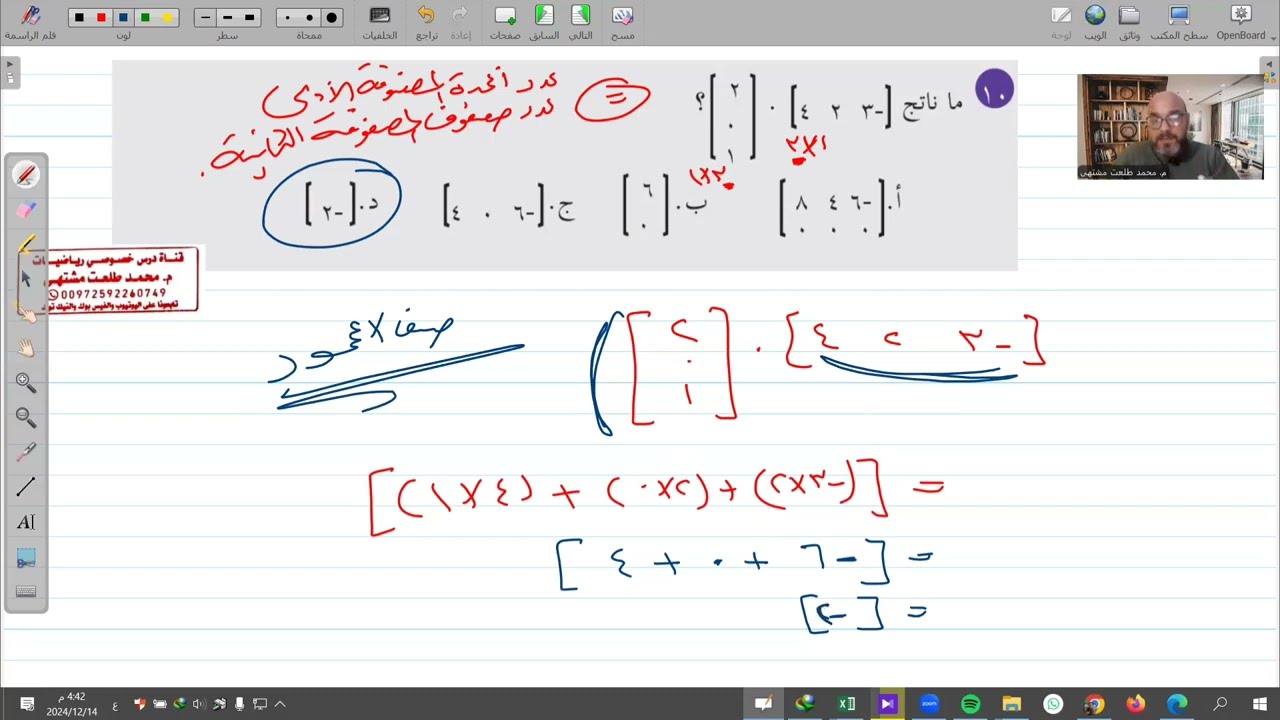 قلم الراسمة
لون
سطر
ممحاة
الخلفيات
تراجع
إعادة
صفحات
السابق
التالي
مسح
لوحة
الويب
وثائق
سطح المكتب
OpenBoard
١٠ ما ناتج [-٣ ٢ ٤] · [٢ ٠ ١] ؟
=
عدد أعمدة المصفوفة الأولى
عدد صفوف المصفوفة الثانية.
١×٣
٣×١
أ. [-٦ ٤ ٨
٠ ٠ ٠]
ب. [٦
٠]
ج. [-٦ ٠ ٤]
د. [-٢]
م. محمد طلعت مشتهى
قناة درس خصوصي رياضيات
م. محمد طلعت مشتهى
00972592260749
تابعونا على اليوتيوب والفيس بوك والتيك توك
[-٣ ٢ ٤] · [٢ ٠ ١]
صف × عمود
= [(-٣×٢) + (٢×٠) + (٤×١)]
= [-٦ + ٠ + ٤]
= [-٢]
AI
4:42 م
2024/12/14
ع
zoom